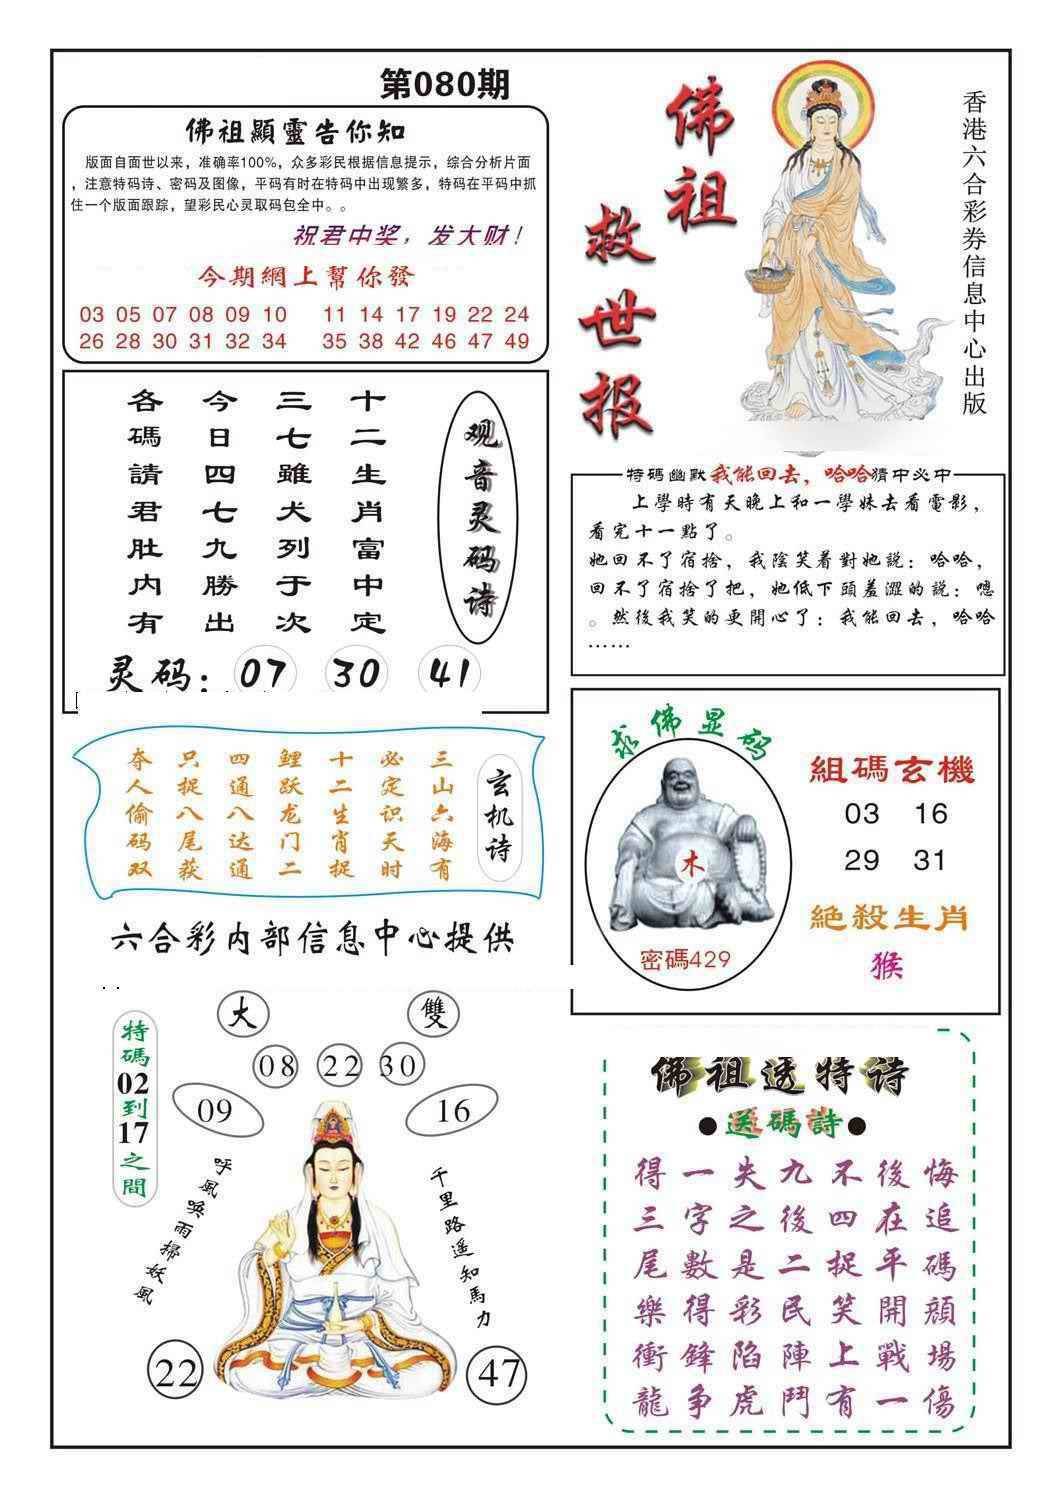 第080期
佛祖顯靈告你知
版面自面世以来，准确率100%，众多彩民根据信息提示，综合分析片面
，注意特码诗、密码及图像，平码有时在特码中出现繁多，特码在平码中抓
住一个版面跟踪，望彩民心灵取码包全中。。
祝君中奖，发大财！
今期網上幫你發
03 05 07 08 09 10 11 14 17 19 22 24
26 28 30 31 32 34 35 38 42 46 47 49
佛祖
救世报
香港六合彩券信息中心出版
观音灵码诗
十二生肖富中定
三七雖犬列于次
今日四七九勝出
各碼請君肚内有
灵码：07 30 41
特碼幽默我能回去，哈哈猜中必中
上學時有天晚上和一學妹去看電影，
看完十一點了。
她回不了宿捨，我陰笑着對她説：哈哈，
回不了宿捨了把，她低下頭羞澀的説：嗯
。然後我笑的更開心了：我能回去，哈哈
……
玄机诗
三山六海有
必定识天时
十二生肖捉
鲤跃龙门二
四通八达通
只捉八尾获
夺人偷码双
六合彩内部信息中心提供
求佛显码
木
密碼429
組碼玄機
03 16
29 31
絕殺生肖
猴
特碼02到17之間
大 雙
08 22 30
09 16
呼風喚雨掃妖風
千里路遥知馬力
22 47
佛祖透特诗
●送碼詩●
得一失九不後悔
三字之後四在追
尾數是二捉平碼
樂得彩民笑開顔
衝鋒陷陣上戰場
龍争虎鬥有一傷